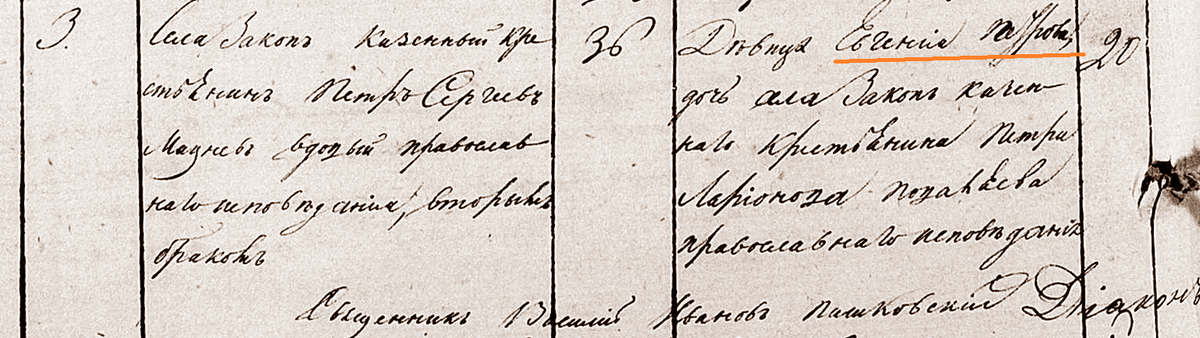 3.
Села Закопъ казенный кре-
стьянинъ Петръ Сергеевъ
Мацневъ вдовый православ-
наго исповѣданія, вторымъ
бракомъ
36
Дѣвица Евгенія Петрова,
дочь села Закопъ казен-
наго крестьянина Петра
Ларіонова
православнаго исповѣданія
20
Священникъ Василій Ивановъ Пашковскій Діаконъ